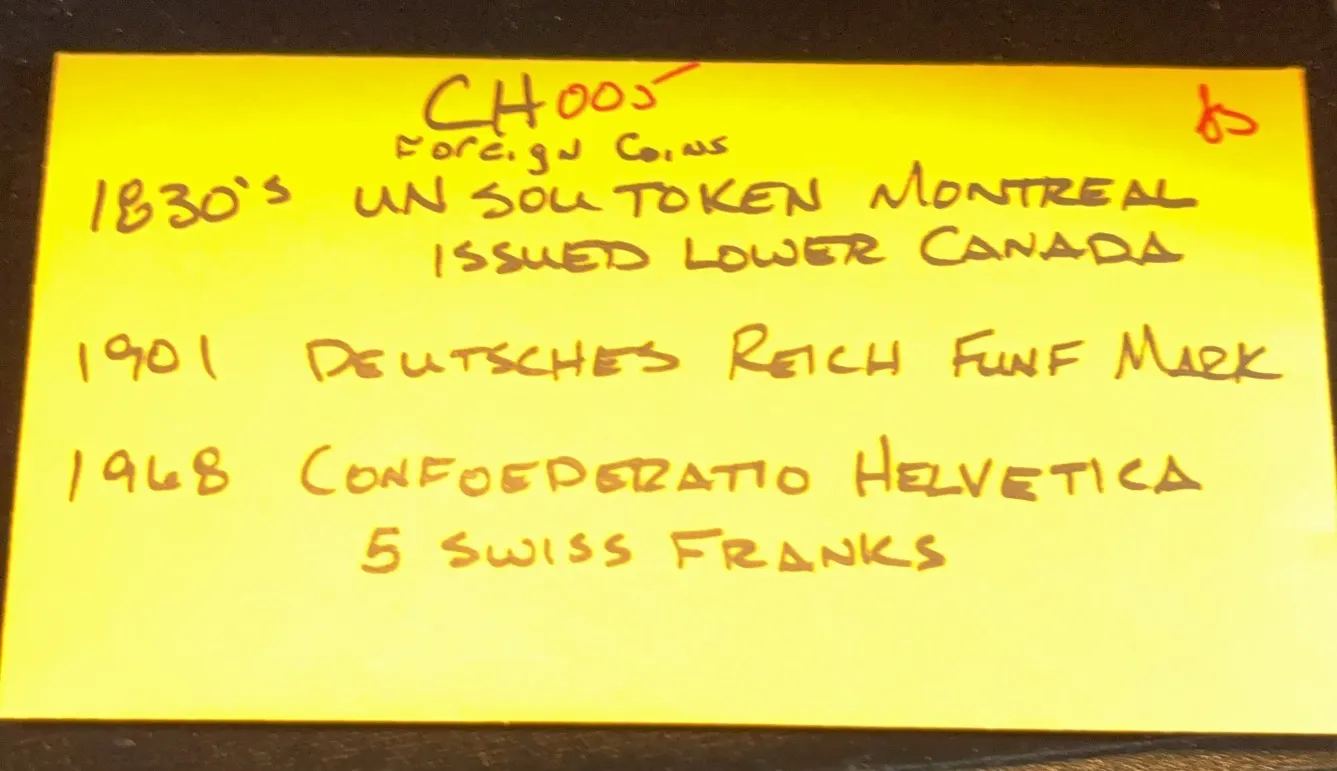 CH005
Foreign Coins
1830's UN SOU TOKEN MONTREAL
ISSUED LOWER CANADA
1901 DEUTSCHES REICH FUNF MARK
1968 CONFOEDERATIO HELVETICA
5 SWISS FRANKS